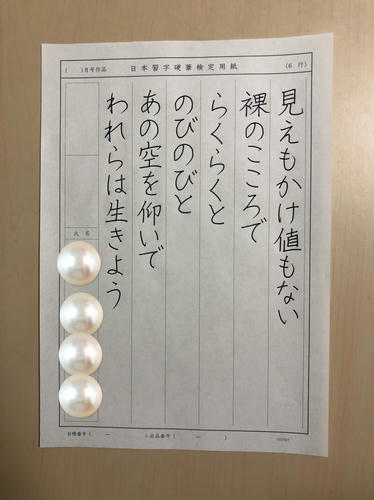 ( )月号作品 日本習字硬筆検定用紙 (6行)
見えもかけ値もない
裸のこころで
らくらくと
のびのびと
あの空を仰いで
われらは生きよう
氏名